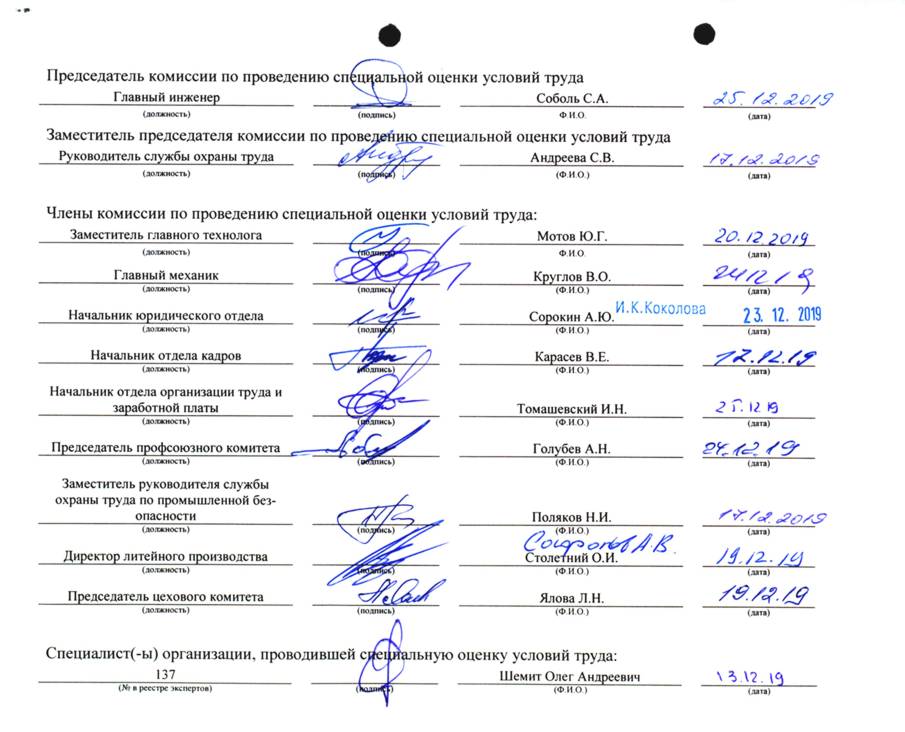 Председатель комиссии по проведению специальной оценки условий труда
Главный инженер Соболь С.А. 25.12.2019
(должность) (подпись) Ф.И.О. (дата)
Заместитель председателя комиссии по проведению специальной оценки условий труда
Руководитель службы охраны труда Андреева С.В. 17.12.2019
(должность) (подпись) (Ф.И.О.) (дата)
Члены комиссии по проведению специальной оценки условий труда:
Заместитель главного технолога Мотов Ю.Г. 20.12.2019
(должность) (подпись) Ф.И.О. (дата)
Главный механик Круглов В.О. 24 12 19
(должность) (подпись) (Ф.И.О.) (дата)
Начальник юридического отдела Сорокин А.Ю. И.К.Коколова 23. 12. 2019
(должность) (подпись) (Ф.И.О.) (дата)
Начальник отдела кадров Карасев В.Е. 17.12.19
(должность) (подпись) (Ф.И.О.) (дата)
Начальник отдела организации труда и
заработной платы Томашевский И.Н. 25.12.19
(должность) (подпись) (Ф.И.О.) (дата)
Председатель профсоюзного комитета Голубев А.Н. 24.12.19
(должность) (подпись) (Ф.И.О.) (дата)
Заместитель руководителя службы
охраны труда по промышленной без-
опасности Поляков Н.И. 17.12.2019
(должность) (подпись) (Ф.И.О.) (дата)
Директор литейного производства Столетний О.И. 19.12.19
(должность) (подпись) (Ф.И.О.) (дата)
Председатель цехового комитета Ялова Л.Н. 19.12.19
(должность) (подпись) (Ф.И.О.) (дата)
Специалист(-ы) организации, проводившей специальную оценку условий труда:
137 Шемит Олег Андреевич 13.12.19
(№ в реестре экспертов) (подпись) (Ф.И.О.) (дата)